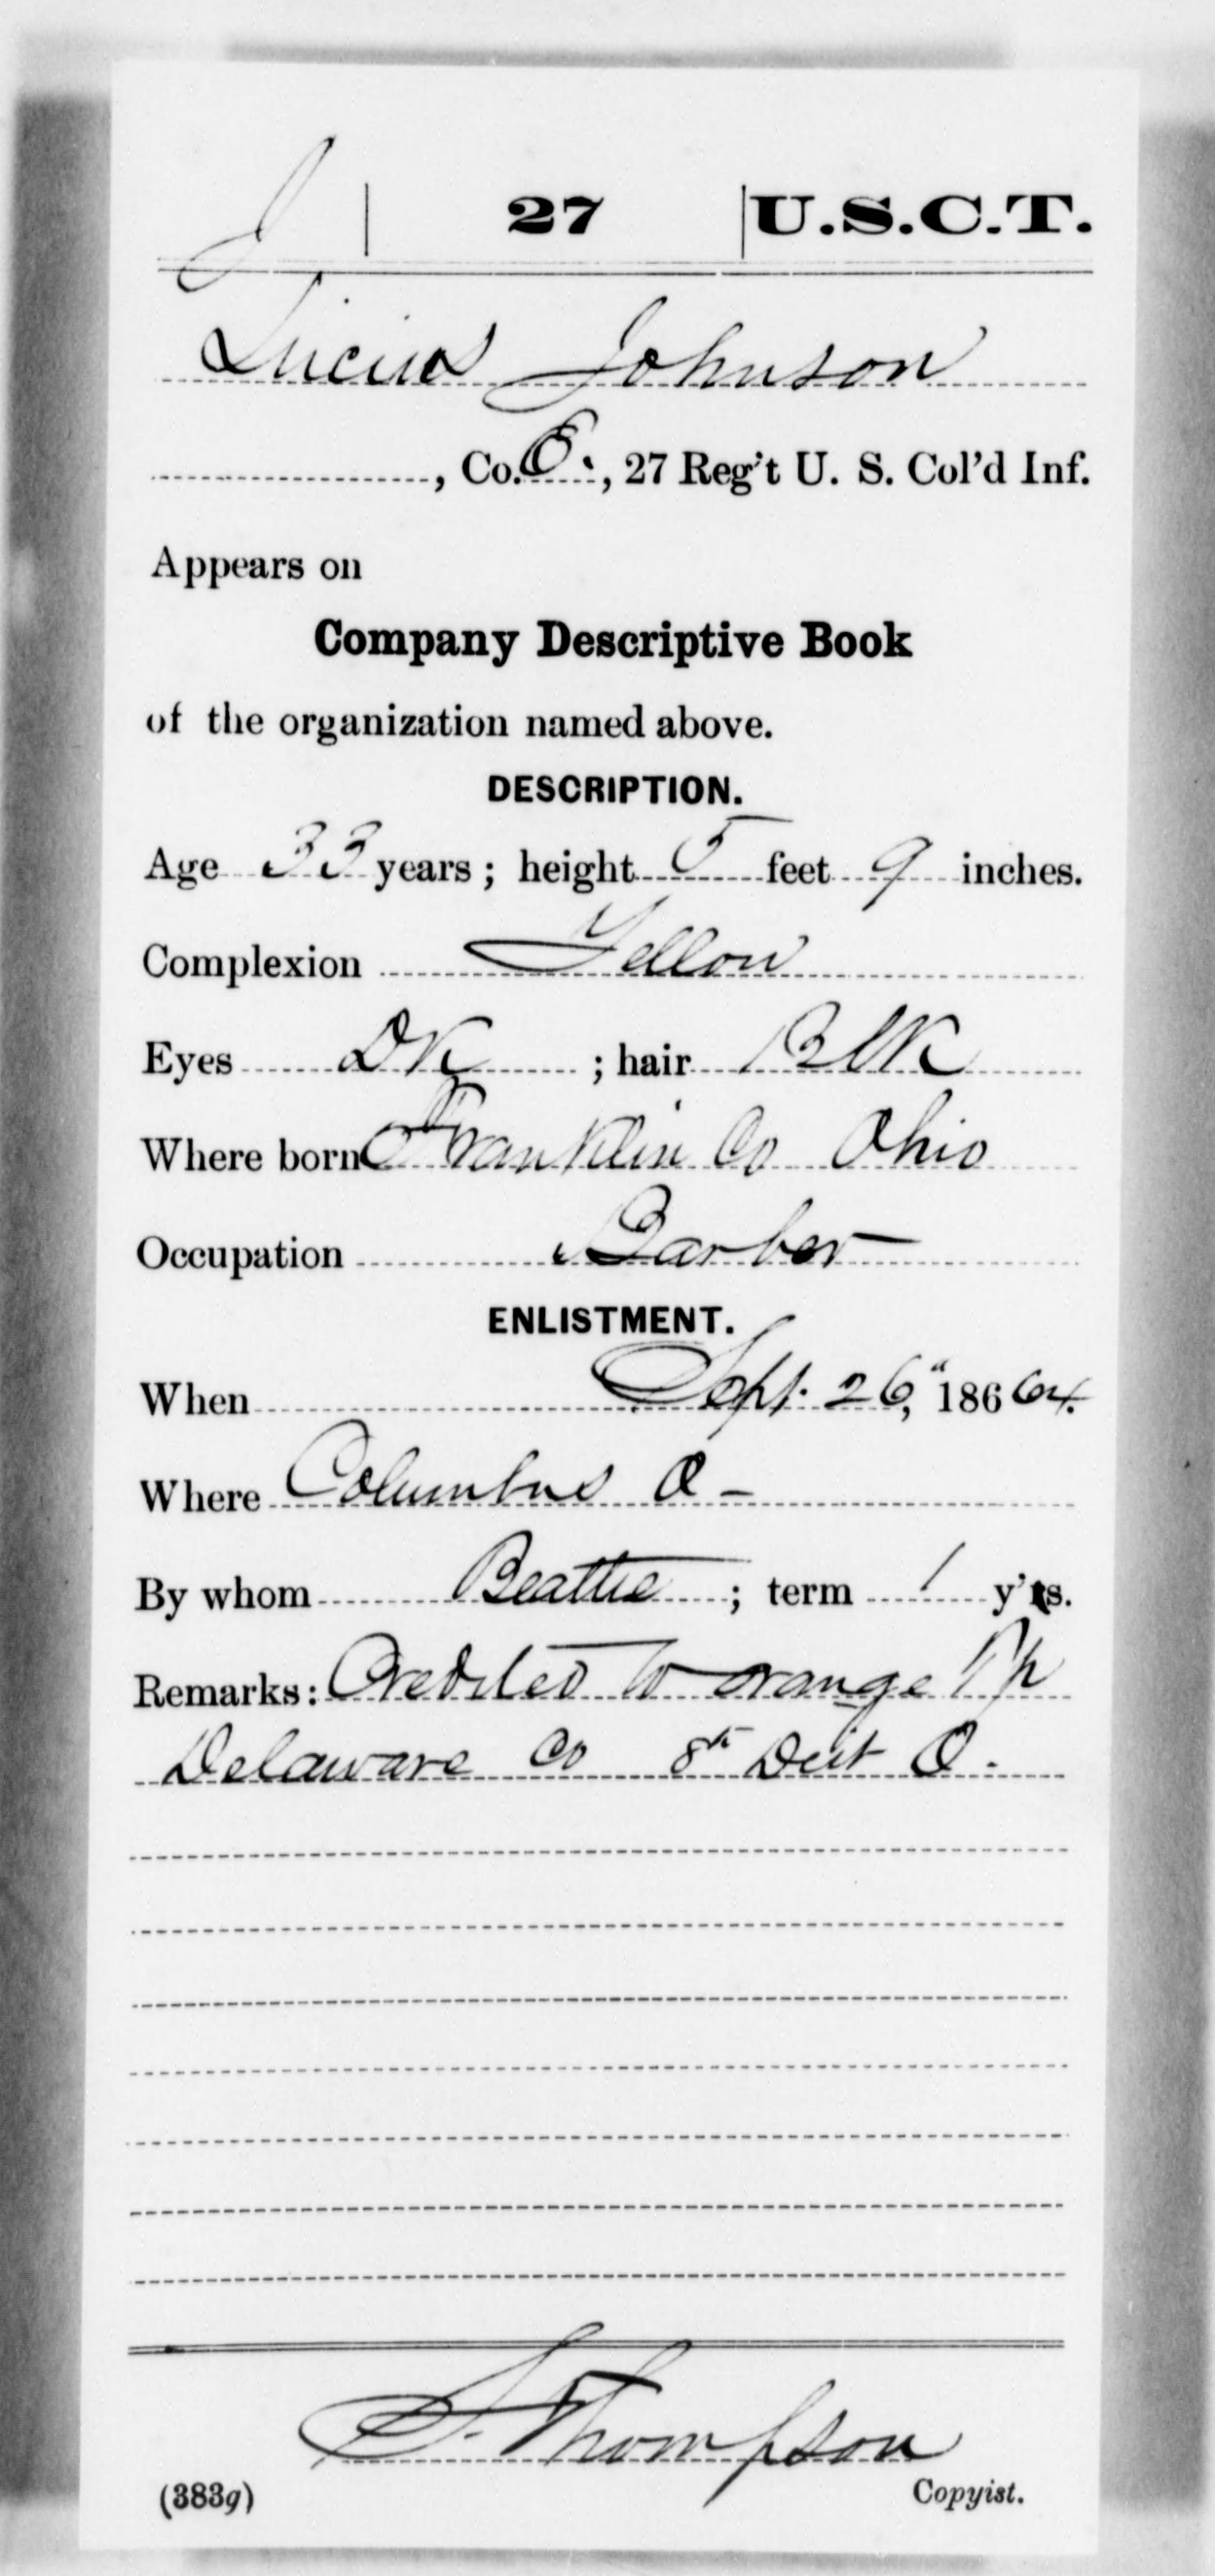 J | 27 | U.S.C.T.
Lucius Johnson
, Co. E., 27 Reg't U. S. Col'd Inf.
Appears on
Company Descriptive Book
of the organization named above.
DESCRIPTION.
Age 33 years; height 5 feet 9 inches.
Complexion Yellow
Eyes DK ; hair BlK
Where born Franklin Co Ohio
Occupation Barber
ENLISTMENT.
When Sept. 26, 186 64.
Where Columbus O -
By whom Beattie ; term 1 y'rs.
Remarks: Credited to orange Tp
Delaware Co 8th Dist O.
S. Thompson
(383g) Copyist.